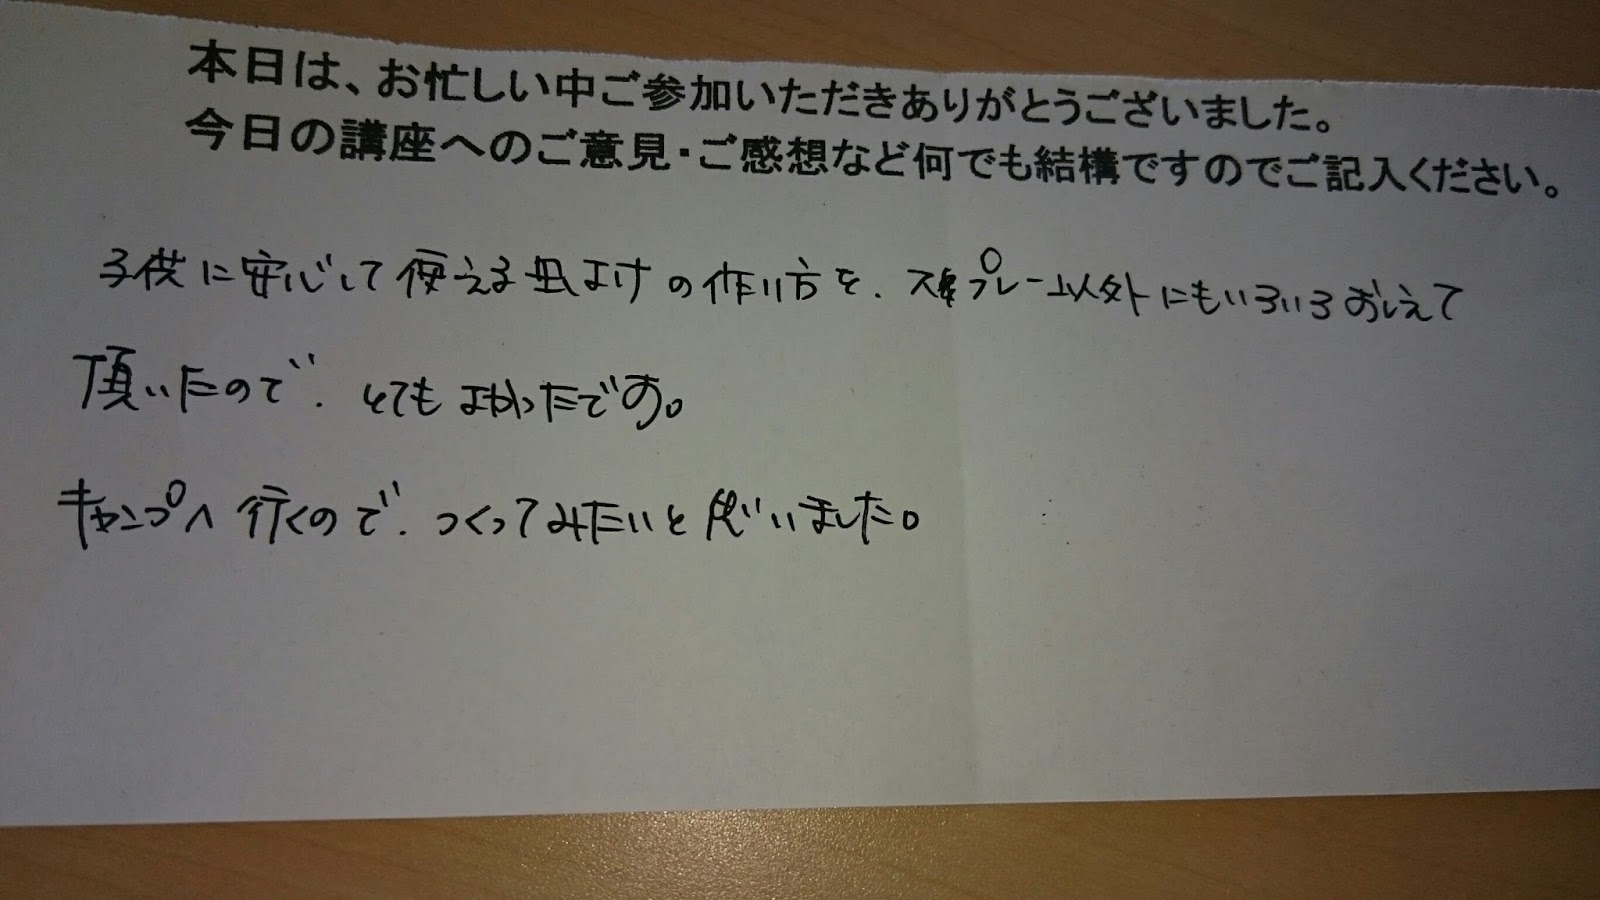 本日は、お忙しい中ご参加いただきありがとうございました。
今日の講座へのご意見・ご感想など何でも結構ですのでご記入ください。
子供に安心して使える虫よけの作り方を、スプレー以外にもいろいろおしえて
頂いたので、とてもよかったです。
キャンプへ行くので、つくってみたいと思いました。